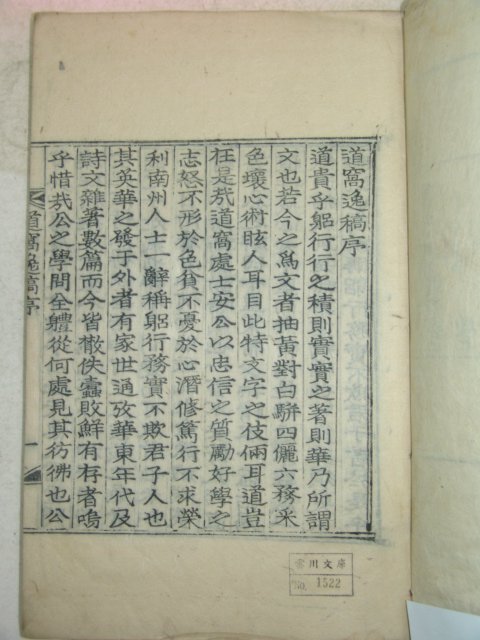 道窩逸稿序
道貴乎躬行行之積則實實之著則華乃所謂
文也若今之爲文者抽黃對白騈四儷六務采
色壞心術眩人耳目此特文字之伎倆耳道豈
在是哉道窩處士安公以忠信之質勵好學之
志怒不形於色貧不憂於心潛修篤行不求榮
利南州人士一辭稱躬行務實不欺君子人也
其英華之發于外者有家世通攷華東年代及
詩文雜著數篇而今皆散佚蠹敗鮮有存者嗚
乎惜哉公之學問全體從何處見其彷彿也公
道窩逸稿序
一
雷川文庫
No. 1522